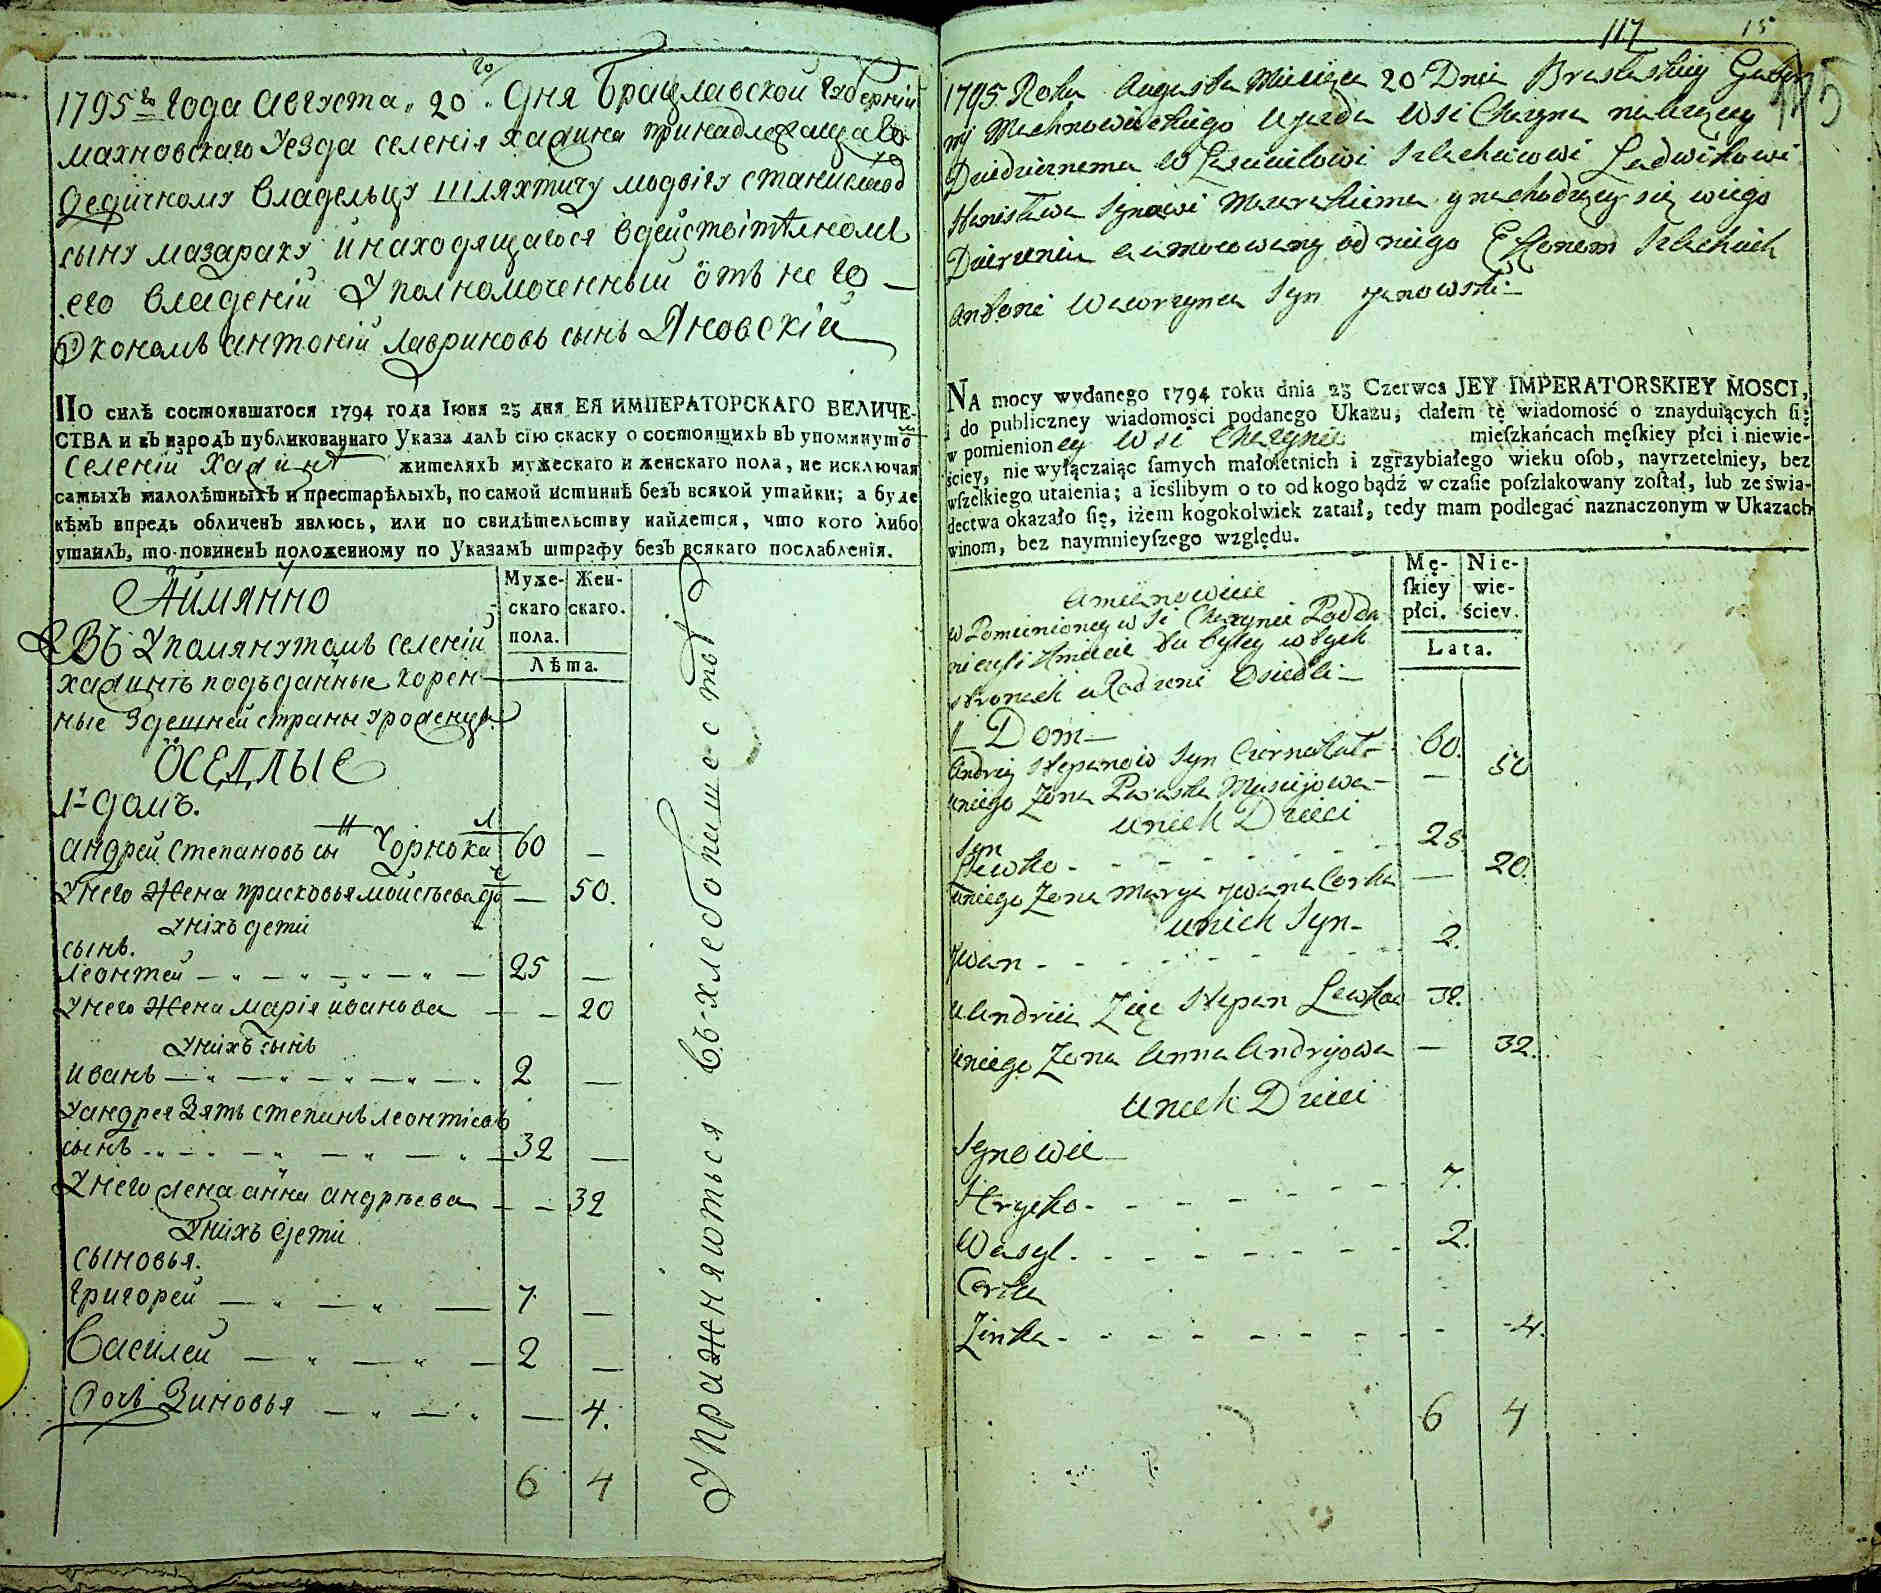 1795го Года Августа 20го дня Брацлавской Губернiи
махновскаго Уезда селенiя хажина принадлежащаго
Дедичному владельцу шляхтичу людвiгу станиславов
сыну мазараку и находящагося вдействiтелномъ
его владенiи Уполномоченный отъ него
Экономъ антонiй лавриновъ сынъ Яновскiй
ПО силѣ состоявшагося 1794 года Iюня 23 дня ЕЯ ИМПЕРАТОРСКАГО ВЕЛИЧЕ-
СТВА и въ народъ публикованнаго Указа далъ сiю скаску о состоящихъ въ упомянуто
селенiи Хажинѣ жителяхъ мужескаго и женскаго пола, не исключая
самыхъ малолѣтныхъ и престарѣлыхъ, по самой истиннѣ безъ всякой утайки; а буде
кѣмъ впредь обличенъ явлюсь, или по свидѣтельству найдется, что кого либо
утаилъ, то повиненъ положенному по Указамъ штрафу безъ всякаго послабленiя.
Аимянно
Муже-скаго пола.
Жен-скаго.
Лѣта.
Въ Упомянутомъ селенiи
хажинѣ подъданные корен-
ные здешней страны уроженцы
ОСЕДЛЫЕ
1й домъ.
андрей степановъ сы Чорнока 60 —
Унего жена присковья моисѣева — 50.
Унiхъ дети
сынъ.
леонтей 25 —
Унего жена марiя иванова — 20
Унихъ сынъ
иванъ 2 —
Уандрея зять степанъ леонтiевъ
сынъ 32 —
Унего жена анна андрѣева — 32
Унихъ дети
сыновья.
григорей 7 —
Василей 2 —
Дочь Зиновья — 4.
6 4
Упражняються въ хлебопашествѣ
117 15
115
1795 Roku Augusta Miesiąca 20 Dnia Brasławskiey Guber
nij Machnowieckiego Ujezdu Wsi Chażyna należącey
Dziedzicznemu Szlachcicowi Ludwikowi
Stanisława Synowi Mazarakiemu y znachodzący się wiego
Dzierżeniu umocowany od niego Ekonom Szlachcic
Antoni Wawrzyna Syn Janowski
NA mocy wydanego 1794 roku dnia 23 Czerwca JEY IMPERATORSKIEY MOSCI,
i do publiczney wiadomości podanego Ukazu, dałem tę wiadomość o znayduiących się
w pomienioney Wsi Chażynie mieſzkańcach męſkiey płci i niewie-
ściey, nie wyłączaiąc ſamych małoletnich i zgrzybiałego wieku oſob, nayrzetelniey, bez
wſzelkiego utaienia; a ieślibym o to od kogo bądź w czaſie poſzlakowany zoſtał, lub ze świa-
dectwa okazało ſię, iżem kogokolwiek zataił, tedy mam podlegać naznaczonym w Ukazach
winom, bez naymnieyſzego względu.
Mę-ſkiey płci.
Nie-wie-ściey.
Lata.
Amianowicie
w Pomienioney wsi Chażynie Podda
ni czyli Kmiecie tu byley w tych
stronach uRodzeni Osiedli
1 Dom
Andrzey Stepanow Syn 60.
uniego Żona Paraska Mojsijowa — 50
unich Dzieci
Syn
Lewko 25
uniego Żona Marya Jwana Corka — 20.
unich Syn
Jwan 2.
u Andrija Zięć Stepan Lewkow 32.
uniego Żona Anna Andrijowa — 32.
unich Dzieci
Synowie
Hryćko 7.
Wasyl 2.
Corka
Zinka 4.
6 4